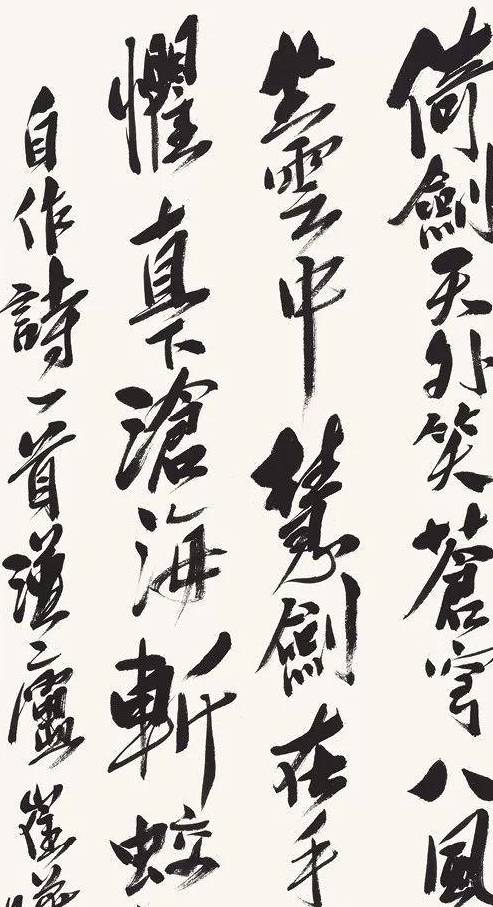 倚劍天外笑蒼穹八風
坐雲中慧劍在手
懼直下滄海斬蛟
自作詩一首漢廬崔